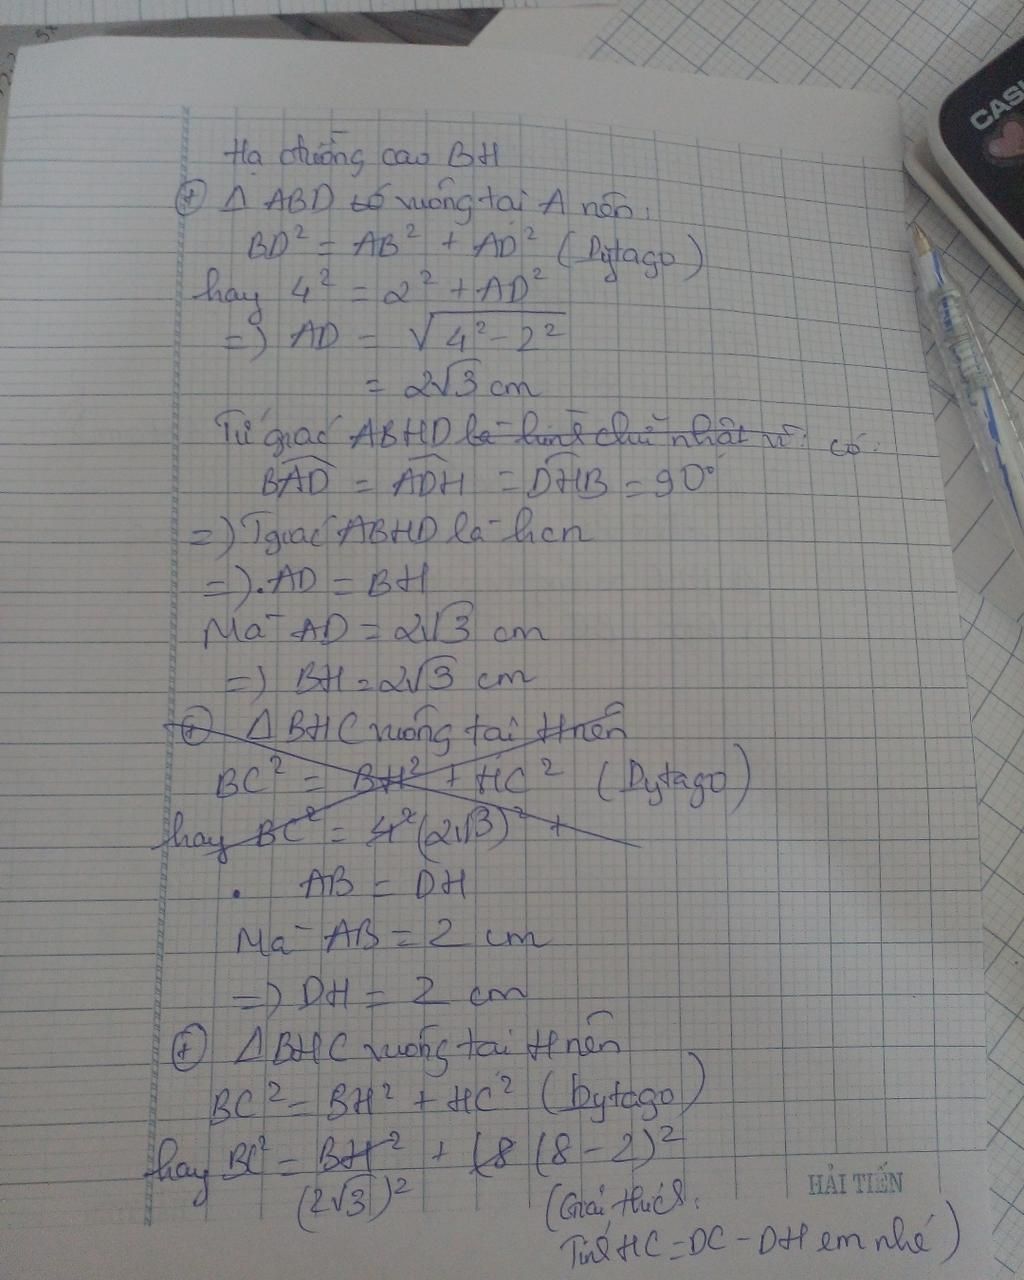 CASI
Hạ đường cao BH
(+) Δ ABD vuông tại A nên:
BD² = AB² + AD² (Pytago)
hay 4² = 2² + AD²
=) AD = √(4² - 2²)
= 2√3 cm
Tứ giác ABHD là hình chữ nhật vì: có:
BAD = ADH = DHB = 90°
=) Tgiác ABHD là hcn
=). AD = BH
Mà AD = 2√3 cm
=) BH = 2√3 cm
(+) Δ BHC vuông tại H nên
BC² = BH² + HC² (Pytago)
hay BC² = 4² (2√3)² +
. AB = DH
Mà AB = 2 cm
=) DH = 2 cm
(+) Δ BHC vuông tại H nên
BC² = BH² + HC² (Pytago)
hay BC² = BH² + (8 (8 - 2)²
(2√3)²
(Giải thích:
Tính HC = DC - DH em nhé)
HẢI TIẾN